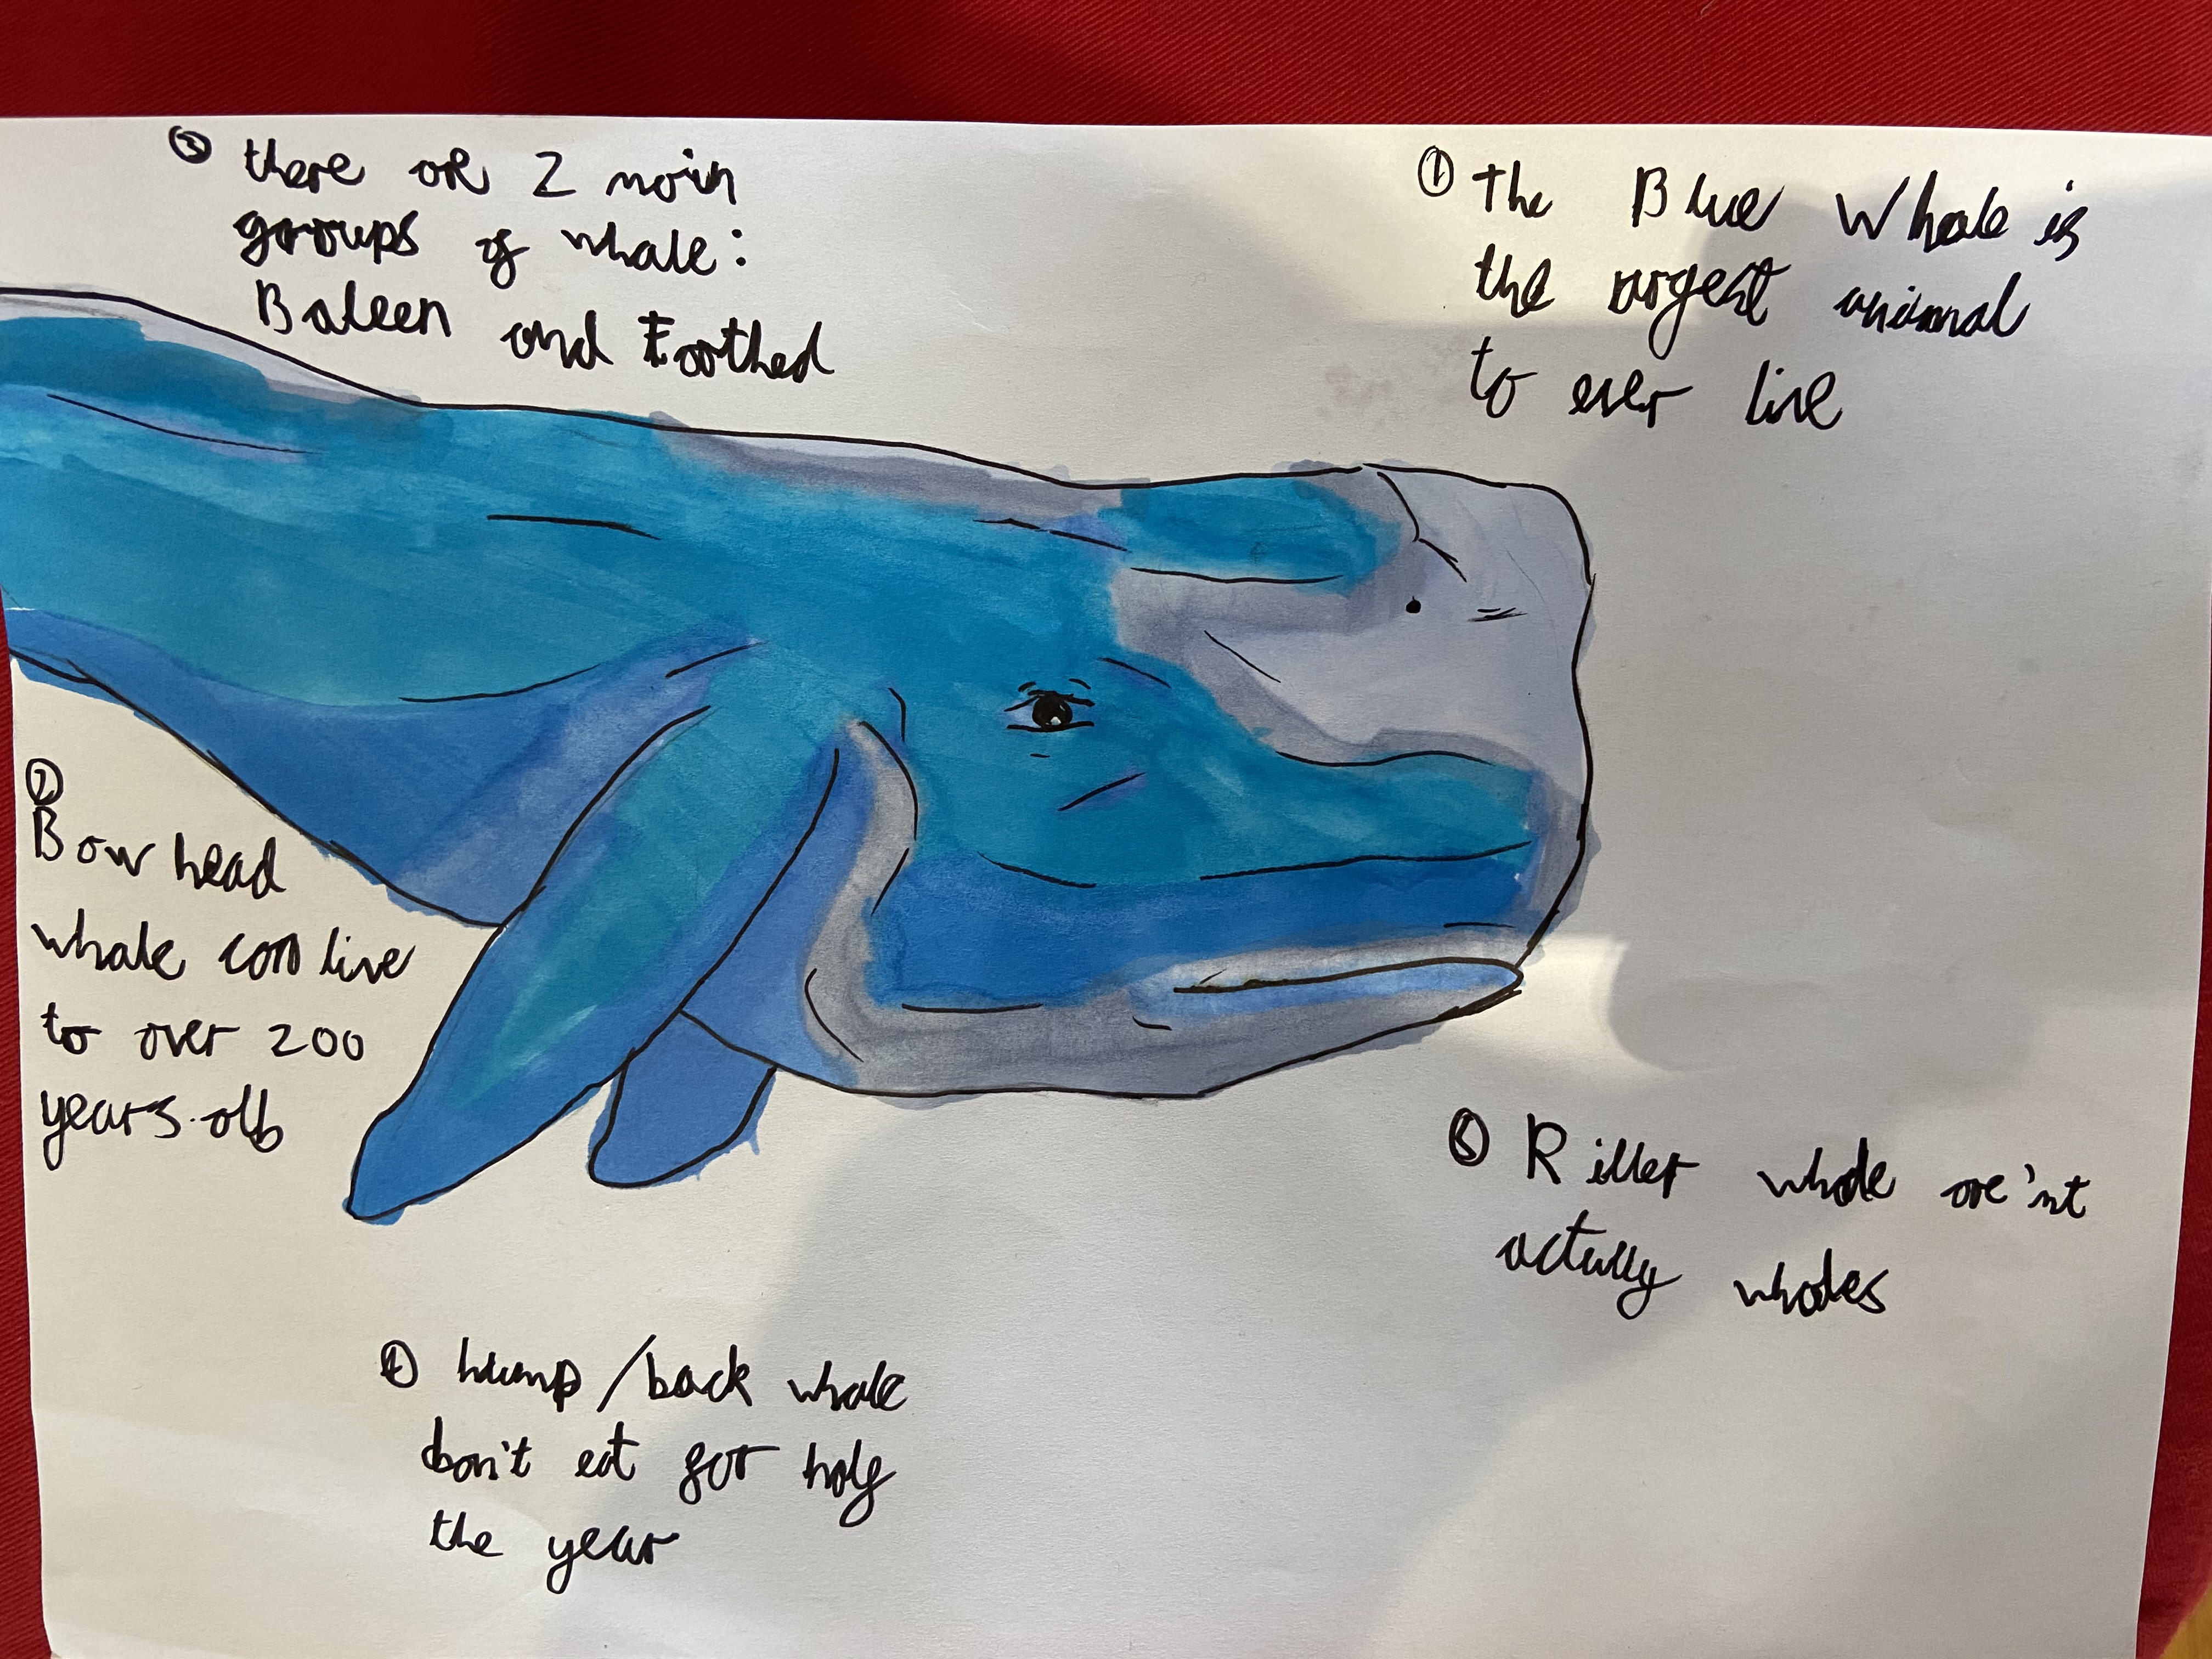 ① The Blue Whale is
the largest animal
to ever live
②
Bowhead
whale can live
to over 200
years old
③ there are 2 main
groups of whale:
Baleen and Toothed
④ hump/back whale
don't eat for half
the year
⑤ Killer whale are'nt
actully whales